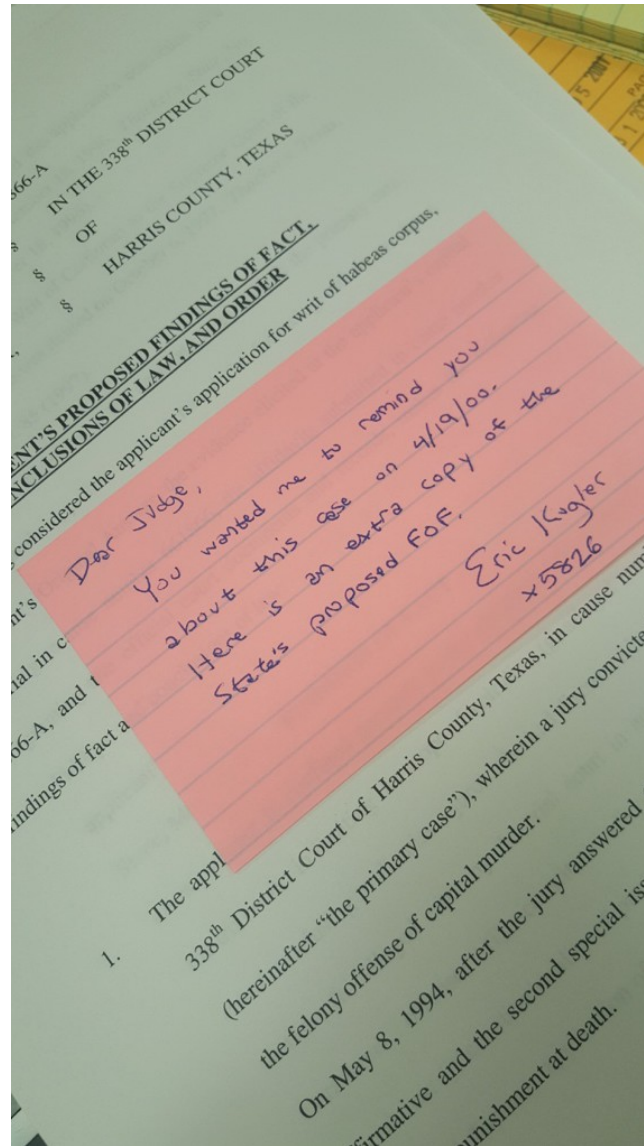 66-A
§ IN THE 338th DISTRICT COURT
§ OF
§ HARRIS COUNTY, TEXAS
ENT'S PROPOSED FINDINGS OF FACT,
NCLUSIONS OF LAW, AND ORDER
considered the applicant's application for writ of habeas corpus,
Dear Judge,
You wanted me to remind you
about this case on 4/19/00.
Here is an extra copy of the
State's proposed FOF.
Eric Kugler
x5826
nt's
ial in c
66-A, and
indings of fact a
1. The appl
338th District Court of Harris County, Texas, in cause num
(hereinafter "the primary case"), wherein a jury convicte
the felony offense of capital murder.
On May 8, 1994, after the jury answered
firmative and the second special iss
unishment at death.